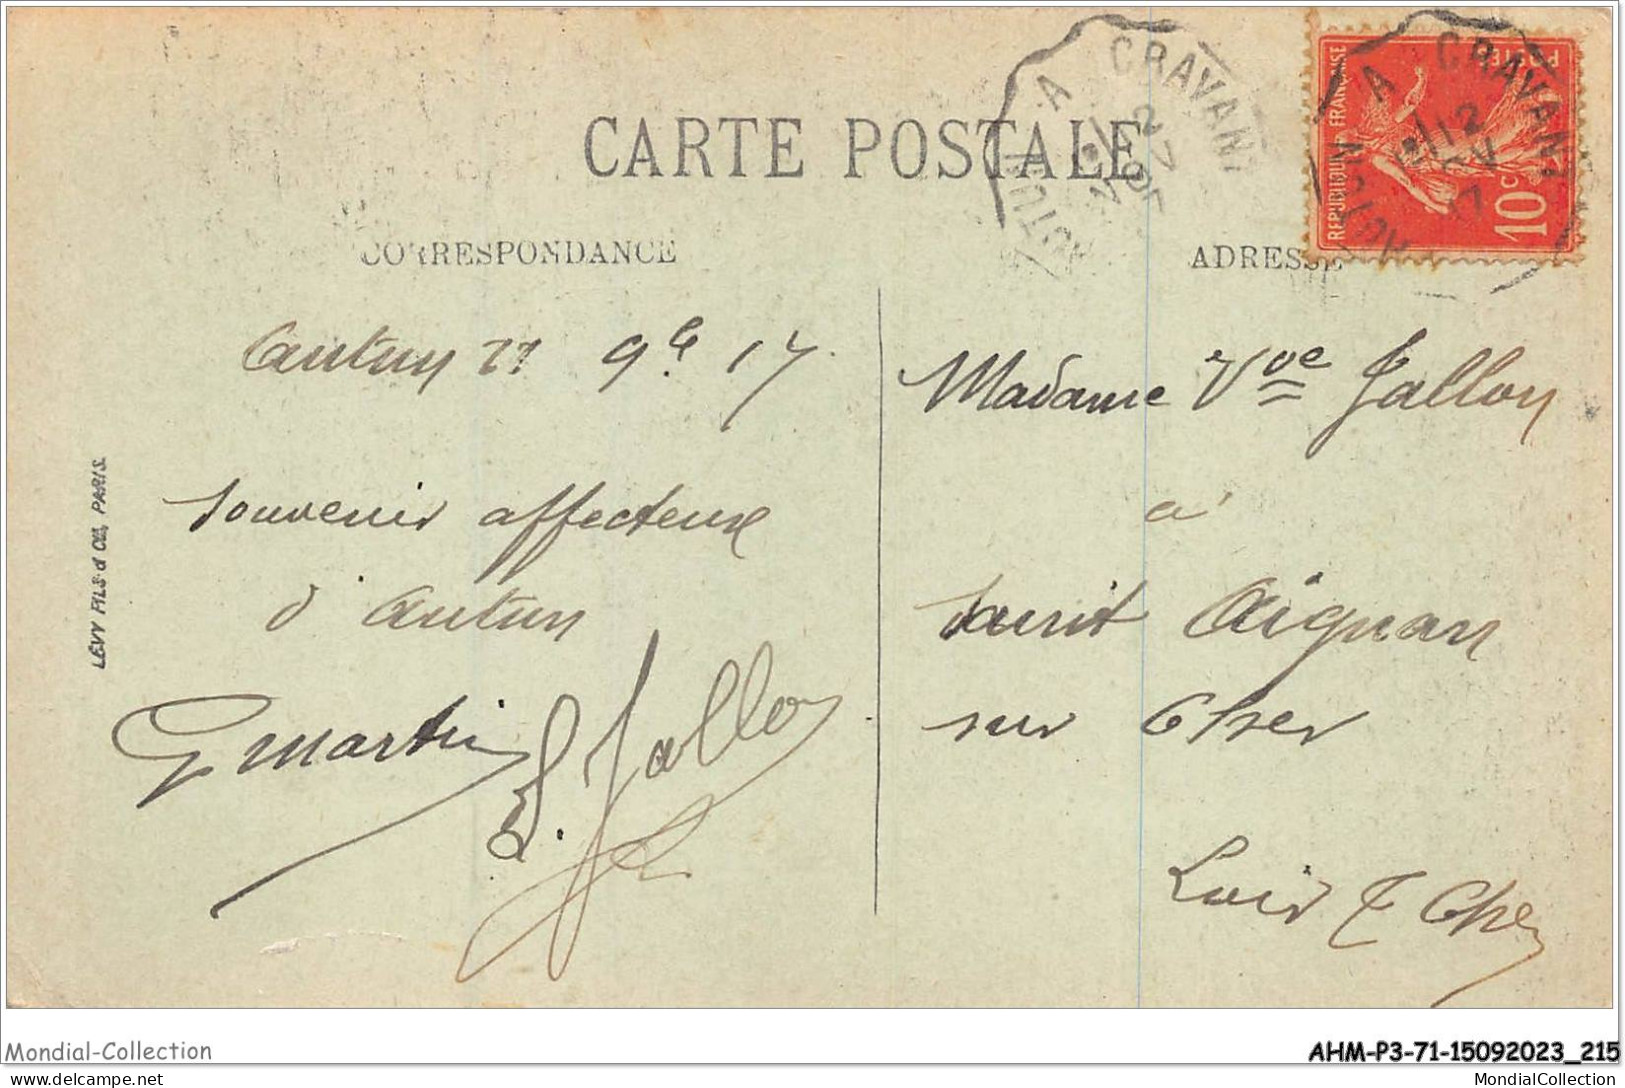 CARTE POSTALE
CORRESPONDANCE
ADRESSE
AUTUN A CRAVANT
AUTUN A CRAVANT
POSTES
REPUBLIQUE FRANÇAISE
10c
Autun 9bre 17
Souvenir affectueux
d'Autun
G Martin
Jallon
Madame Vve Jallon
a
Saint Aignan
sur Cher
Loir & Cher
LÉVY FILS & Cie, PARIS.
Mondial-Collection
AHM-P3-71-15092023_215
delcampe.net
MondialCollection